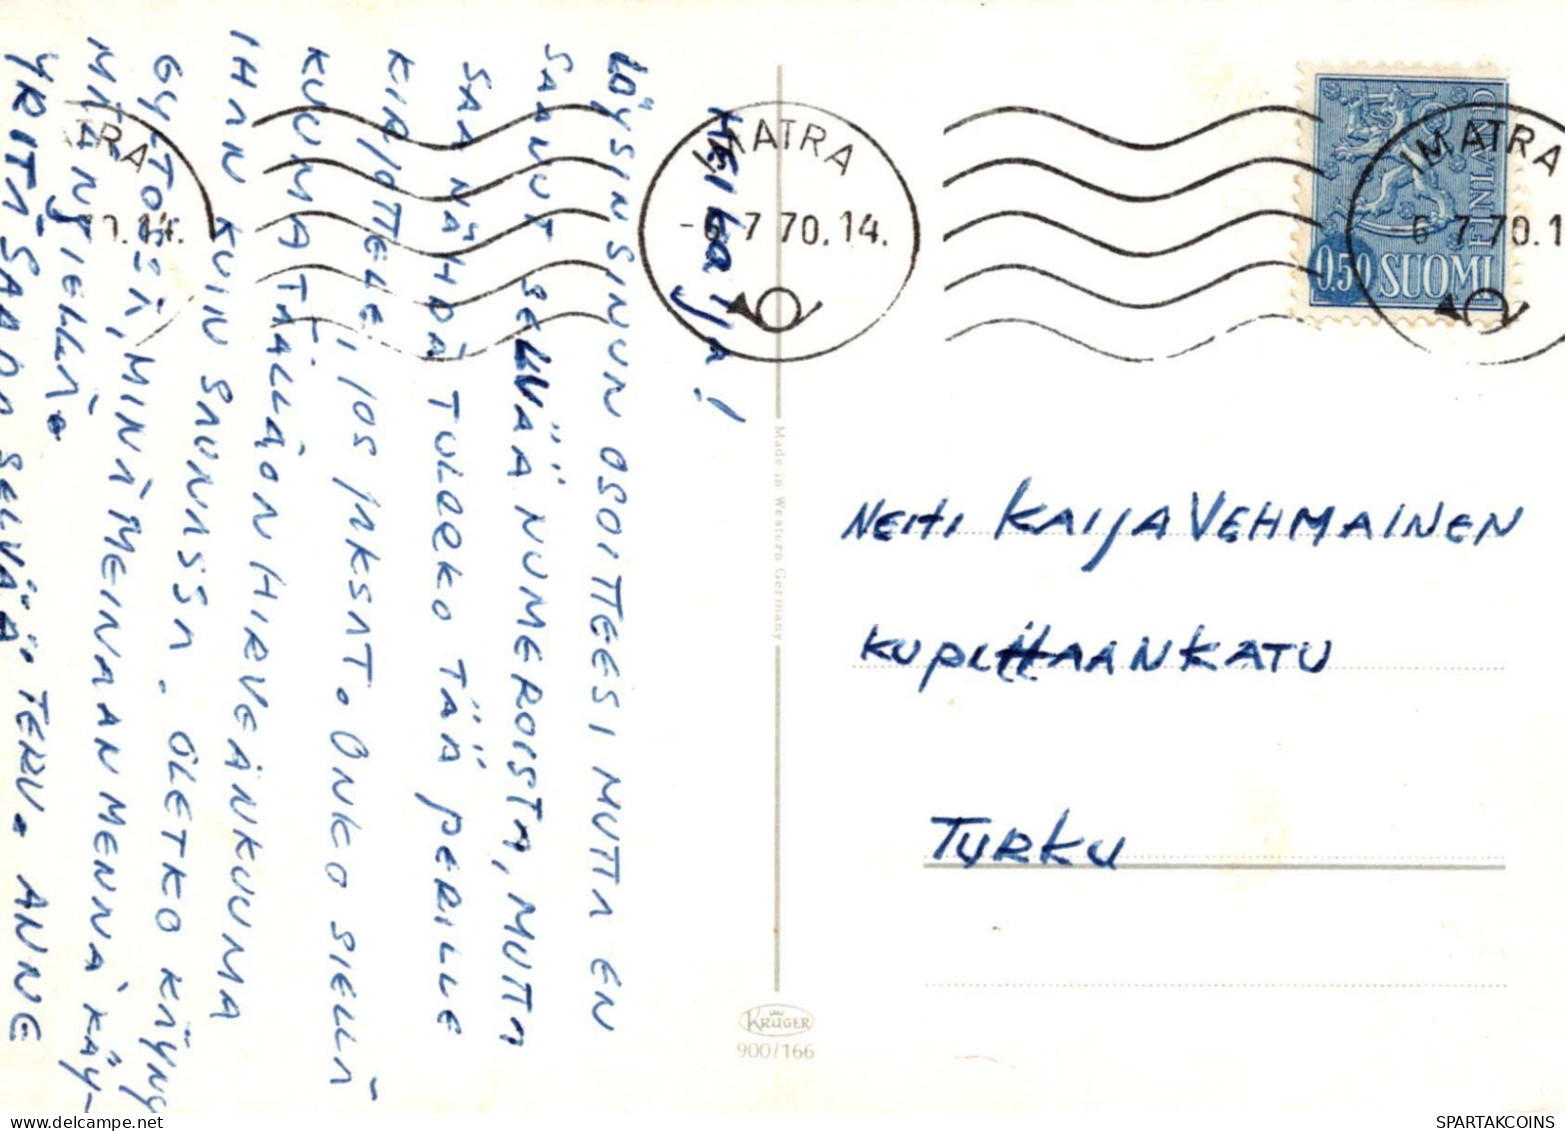 HEI KAIJA!
LÖYSIN SINUN OSOITTEESI MUTTA EN
SAANUT SELVÄÄ NUMEROISTA, MUTTA
SAA NÄHDÄ TULEEKO TÄÄ PERILLE
KIRJOITTELE, JOS JAKSAT. ONKO SIELLÄ
KUUMA TÄÄLLÄ ON HIRVEÄN KUUMA
IHAN KUIN SAUNASSA. OLETKO KÄYNY
GYLTÖSSÄ, MINÄ MEINAAN MENNÄ KÄY-
MÄÄN SIELLÄ.
YRITÄ SAADA SELVÄÄ. TERV. ANNE
NEITI KAIJA VEHMAINEN
KUPITTAANKATU
TURKU
IMATRA
-6.7.70.14.
IMATRA
-6.7.70.1
TRA
0.14.
0.50 SUOMI
FINLAND
Made in Western Germany
KRÜGER
900/166
SPARTAKCOINS